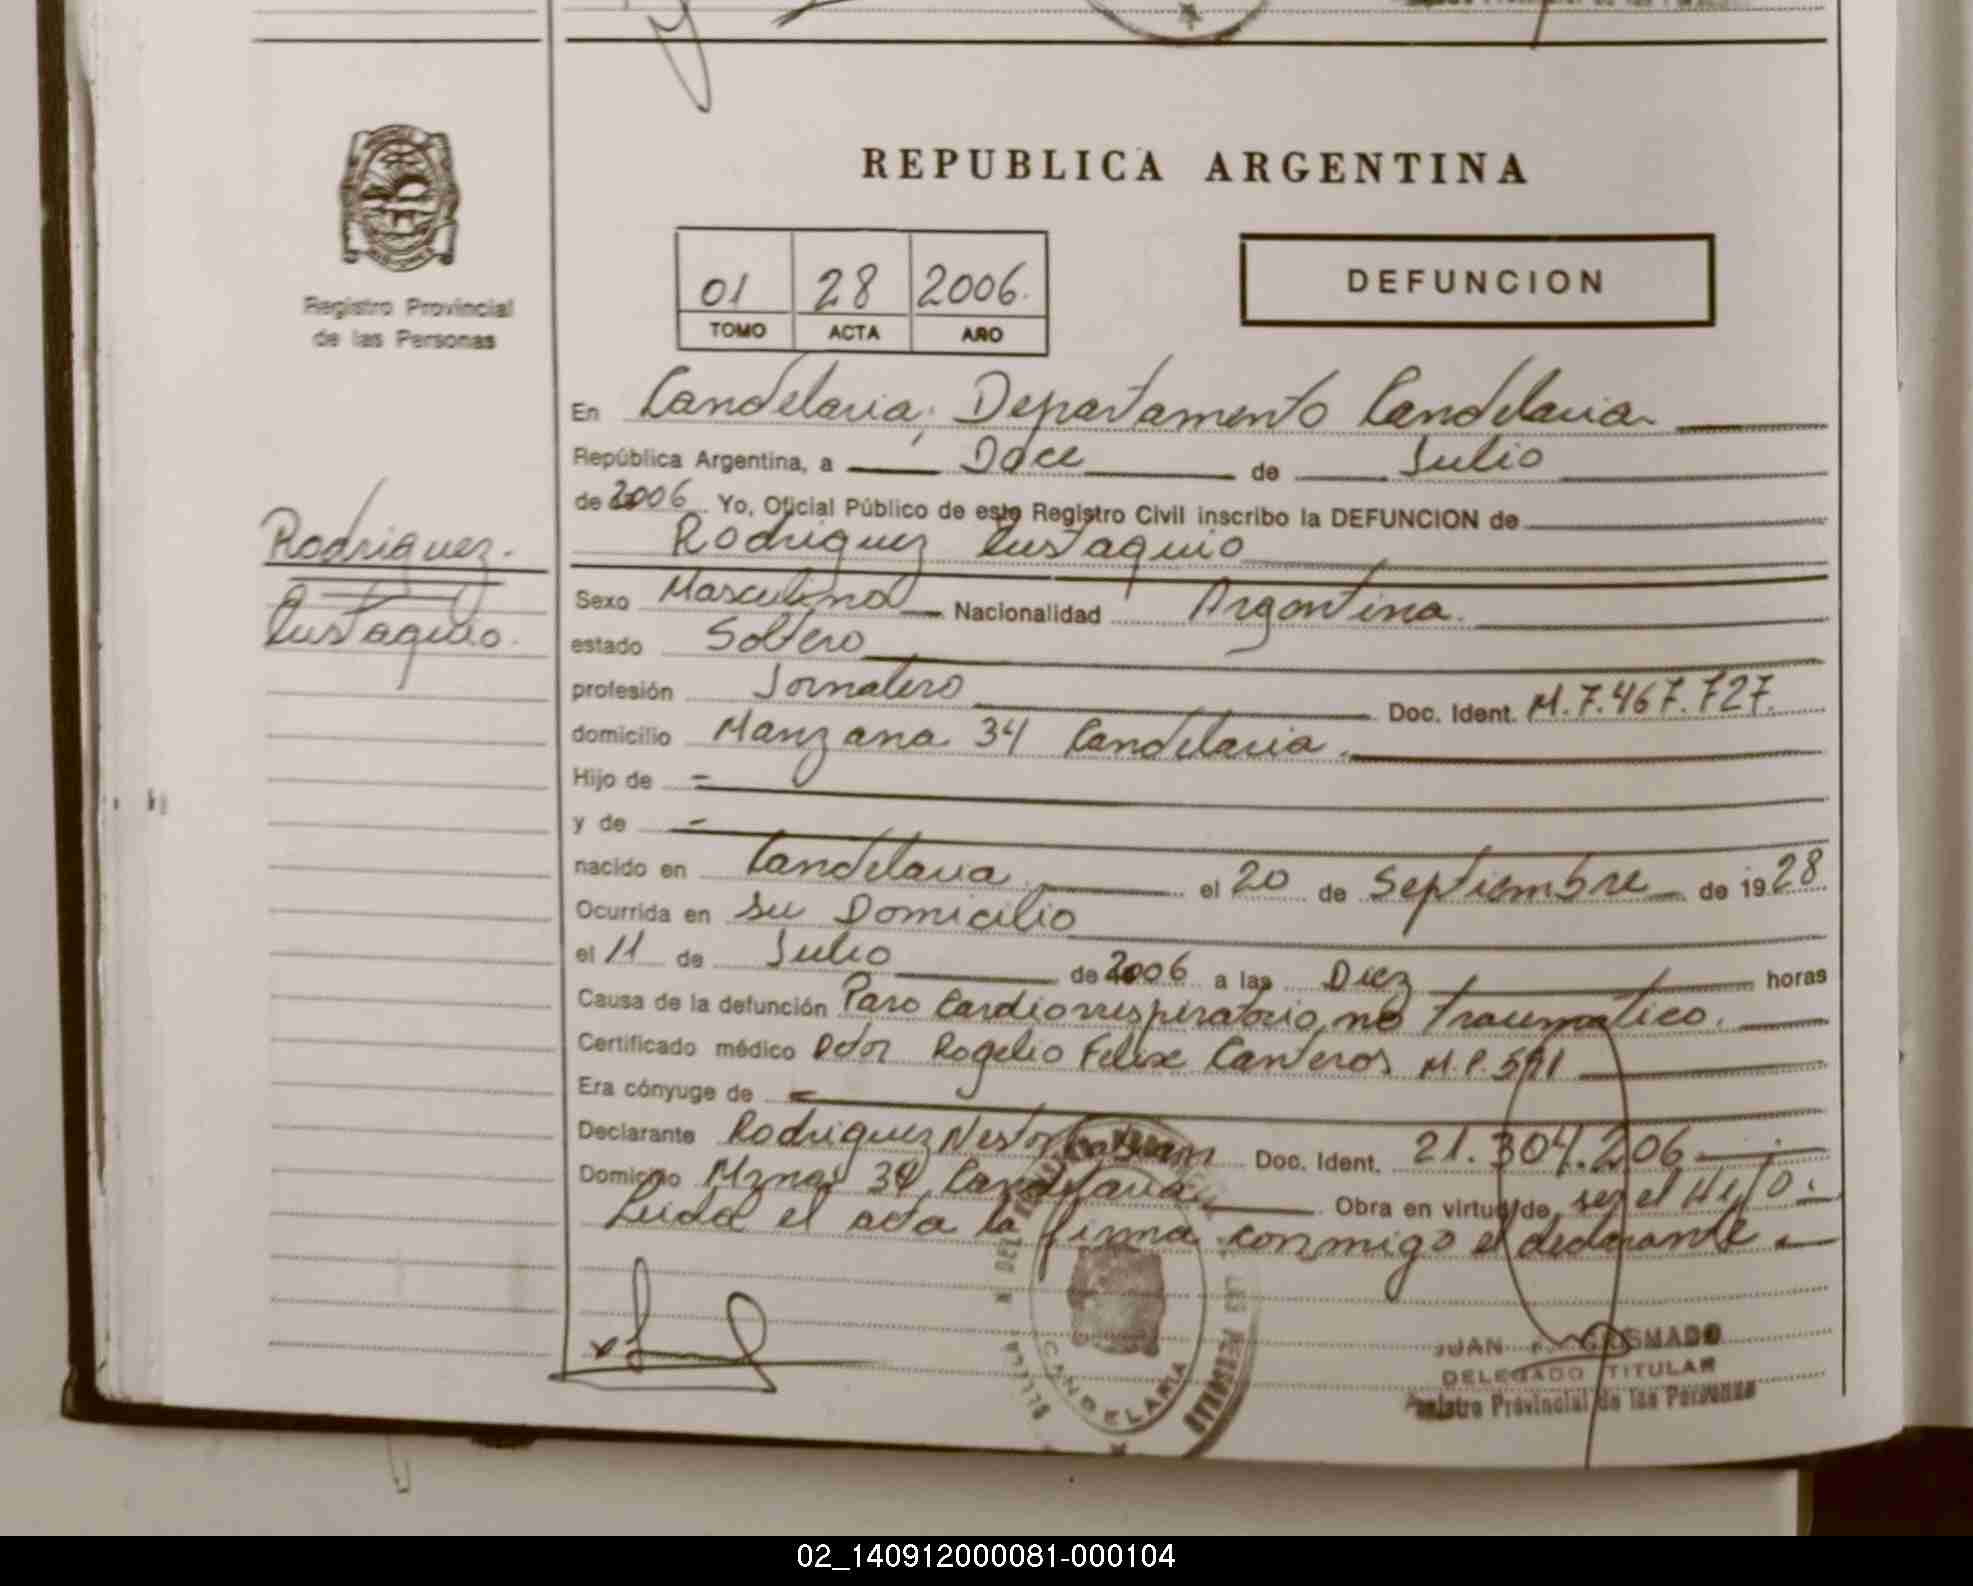 REPUBLICA ARGENTINA
Registro Provincial
de las Personas
01 28 2006.
TOMO ACTA AÑO
DEFUNCION
En Candelaria, Departamento Candelaria
República Argentina, a Doce de Julio
de 2006 Yo, Oficial Público de este Registro Civil inscribo la DEFUNCION de
Rodriguez.
Eustaquio.
Rodriguez Eustaquio
Sexo Masculino Nacionalidad Argentina.
estado Soltero
profesión Jornalero Doc. Ident. M.7.467.727.
domicilio Manzana 34 Candelaria.
Hijo de =
y de -
nacido en Candelaria el 20 de Septiembre de 1928
Ocurrida en su Domicilio
el 11 de Julio de 2006 a las Diez horas
Causa de la defunción Paro Cardiorrespiratorio, no traumatico.
Certificado médico Rogelio Felix Canteros M.P.
Era cónyuge de =
Declarante Rodriguez Nestor Doc. Ident. 21.304.206
Domicilio Mzna 34 Candelaria Obra en virtud de ser el Hijo.
Leida el acta la firma conmigo el declarante.
CANDELARIA
JUAN
DELEGADO TITULAR
Registro Provincial de las Personas
02_140912000081-000104